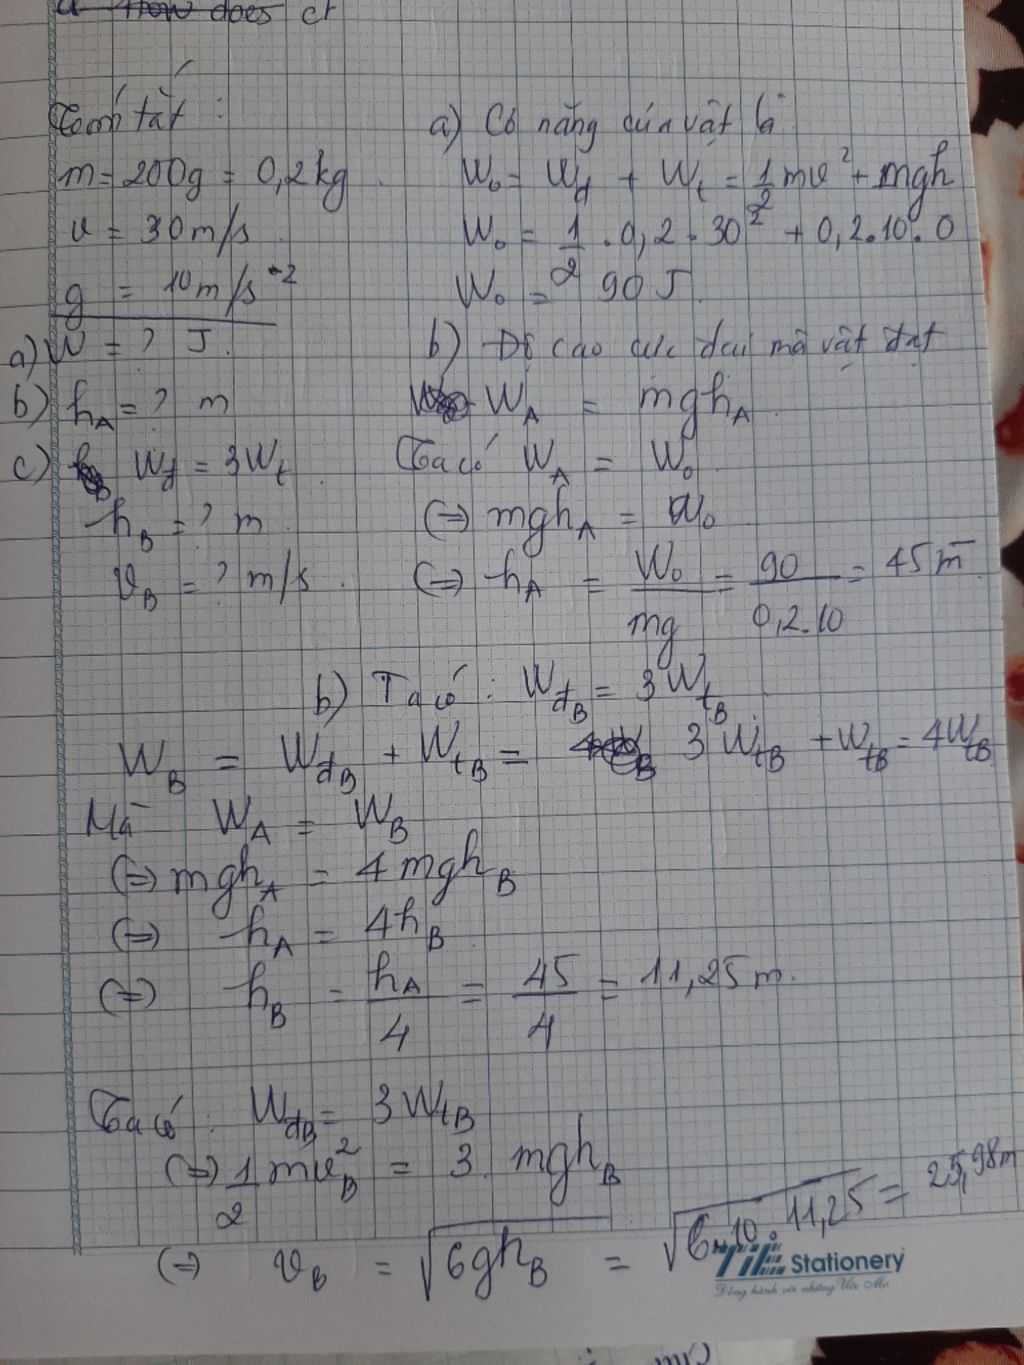 a How does ct
Tóm tắt :
m = 200g = 0,2kg
v = 30m/s
g = 10m/s^-2
a) W = ? J.
b) h_A = ? m
c) W_đ = 3W_t
h_B = ? m
v_B = ? m/s.
a) Cơ năng của vật là
W_0 = W_đ + W_t = 1/2 mv^2 + mgh
W_0 = 1/2 . 0,2 . 30^2 + 0,2.10.0
W_0 = 90 J
b) Độ cao cực đại mà vật đạt
W_A = mgh_A
Ta có W_A = W_0
(=) mgh_A = W_0
(=) h_A = W_0/mg = 90/0,2.10 = 45m
b) Ta có : W_đB = 3W_tB
W_B = W_đB + W_tB = 3W_tB + W_tB = 4W_tB
Mà W_A = W_B
(=) mgh_A = 4mgh_B
(=) h_A = 4h_B
(=) h_B = h_A/4 = 45/4 = 11,25m.
Ta có : W_đB = 3W_tB
(=) 1/2 mv_B^2 = 3. mgh_B
(=) v_B = √6gh_B = √6.10.11,25 = 25,98m
TiTi Stationery
Đồng hành với những Ước Mơ